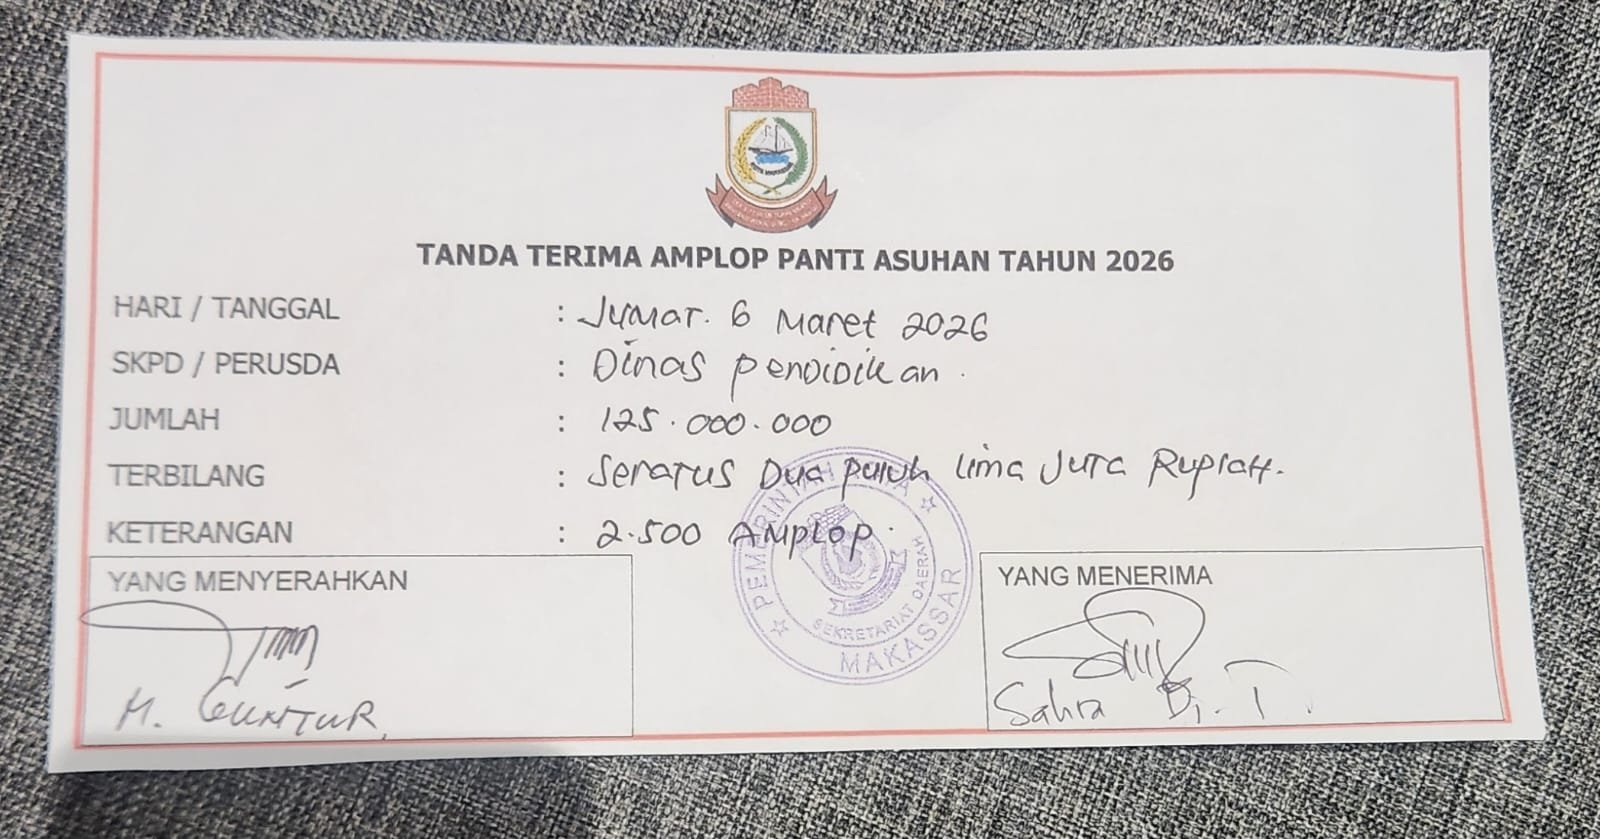 KOTA MAKASSAR
TANDA TERIMA AMPLOP PANTI ASUHAN TAHUN 2026
HARI / TANGGAL : Jumat. 6 Maret 2026
SKPD / PERUSDA : Dinas Pendidikan.
JUMLAH : 125.000.000
TERBILANG : Seratus Dua Puluh Lima Juta Rupiah.
KETERANGAN : 2.500 Amplop.
PEMERINTAH KOTA MAKASSAR
SEKRETARIAT DAERAH
YANG MENYERAHKAN
H. GUNTUR
YANG MENERIMA
Sahra Dj. T.